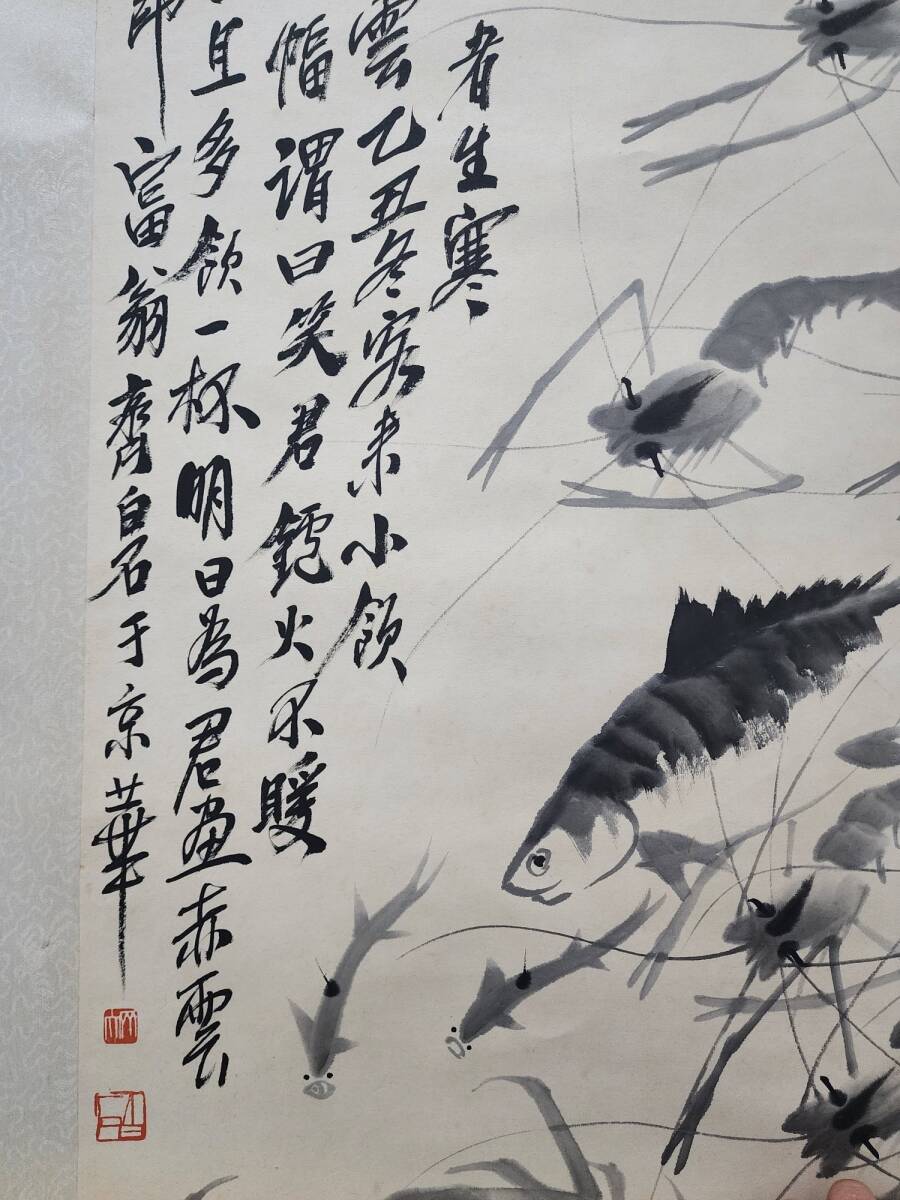 者生寒
雲乙丑冬客来小飲
幅謂曰笑君鑪火不暖
且多飲一杯明日為君畫赤雲
師富翁齊白石于京華